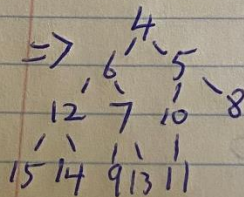 4
=> 6 5
12 7 10 8
15 14 9 13 11